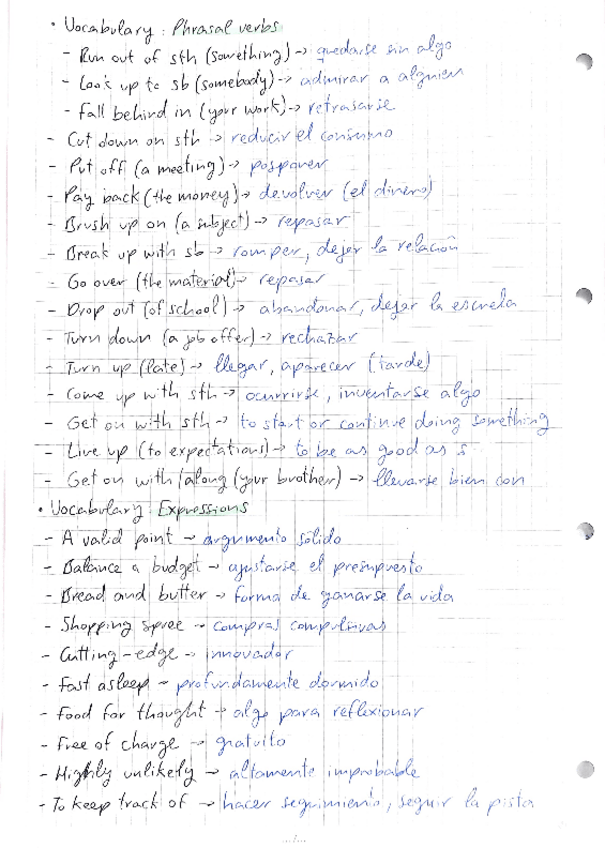 • Vocabulary: Phrasal verbs
- Run out of sth (something) -> quedarse sin algo
- Look up to sb (somebody) -> admirar a alguien
- Fall behind in (your work) -> retrasarse
- Cut down on sth -> reducir el consumo
- Put off (a meeting) -> posponer
- Pay back (the money) -> devolver (el dinero)
- Brush up on (a subject) -> repasar
- Break up with sb -> romper, dejar la relación
- Go over (the material) -> repasar
- Drop out (of school) -> abandonar, dejar la escuela
- Turn down (a job offer) -> rechazar
- Turn up (late) -> llegar, aparecer (tarde)
- Come up with sth -> ocurrirse, inventarse algo
- Get on with sth -> to start or continue doing something
- Live up (to expectations) -> to be as good as s
- Get on with/along (your brother) -> llevarse bien con
• Vocabulary: Expressions
- A valid point -> argumento sólido
- Balance a budget -> ajustarse el presupuesto
- Bread and butter -> forma de ganarse la vida
- Shopping spree -> compras compulsivas
- Cutting-edge -> innovador
- Fast asleep -> profundamente dormido
- Food for thought -> algo para reflexionar
- Free of charge -> gratuito
- Highly unlikely -> altamente improbable
- To keep track of -> hacer seguimiento, seguir la pista
.../...